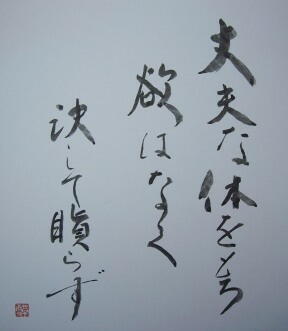 丈夫な体を
もち
欲はなく
決して瞋らず